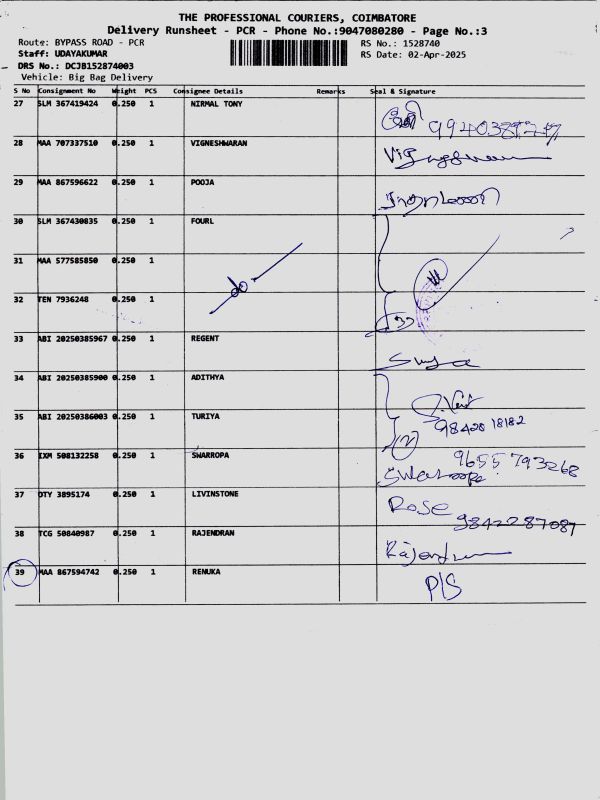 THE PROFESSIONAL COURIERS, COIMBATORE
Delivery Runsheet - PCR - Phone No.:9047080280 - Page No.:3
Route: BYPASS ROAD - PCR RS No.: 1528740
Staff: UDAYAKUMAR RS Date: 02-Apr-2025
DRS No.: DCJB152874003
Vehicle: Big Bag Delivery
S No Consignment No Weight PCS Consignee Details Remarks Seal & Signature
27 SLM 367419424 0.250 1 NIRMAL TONY
28 MAA 707337510 0.250 1 VIGNESHWARAN
29 MAA 867596622 1 POOJA
30 SLM 367430835 0.250 1 FOURL
31 MAA 577585850 0.250 1
32 TEN 7936248 0.250 1 do
33 ABI 20250385967 0.250 1 REGENT
Surya
34 ABI 20250385900 0.250 1 ADITHYA
35 ABI 20250386003 0.250 1 TURIYA 98428 18182
(2)
36 IXM 508132258 0.250 1 SWARROPA 9655793268
Swaroopa
37 OTY 3895174 0.250 1 LIVINSTONE Rose
9842287087
38 TCG 50840987 0.250 1 RAJENDRAN Rajendran
39 MAA 867594742 0.250 1 RENUKA P/S